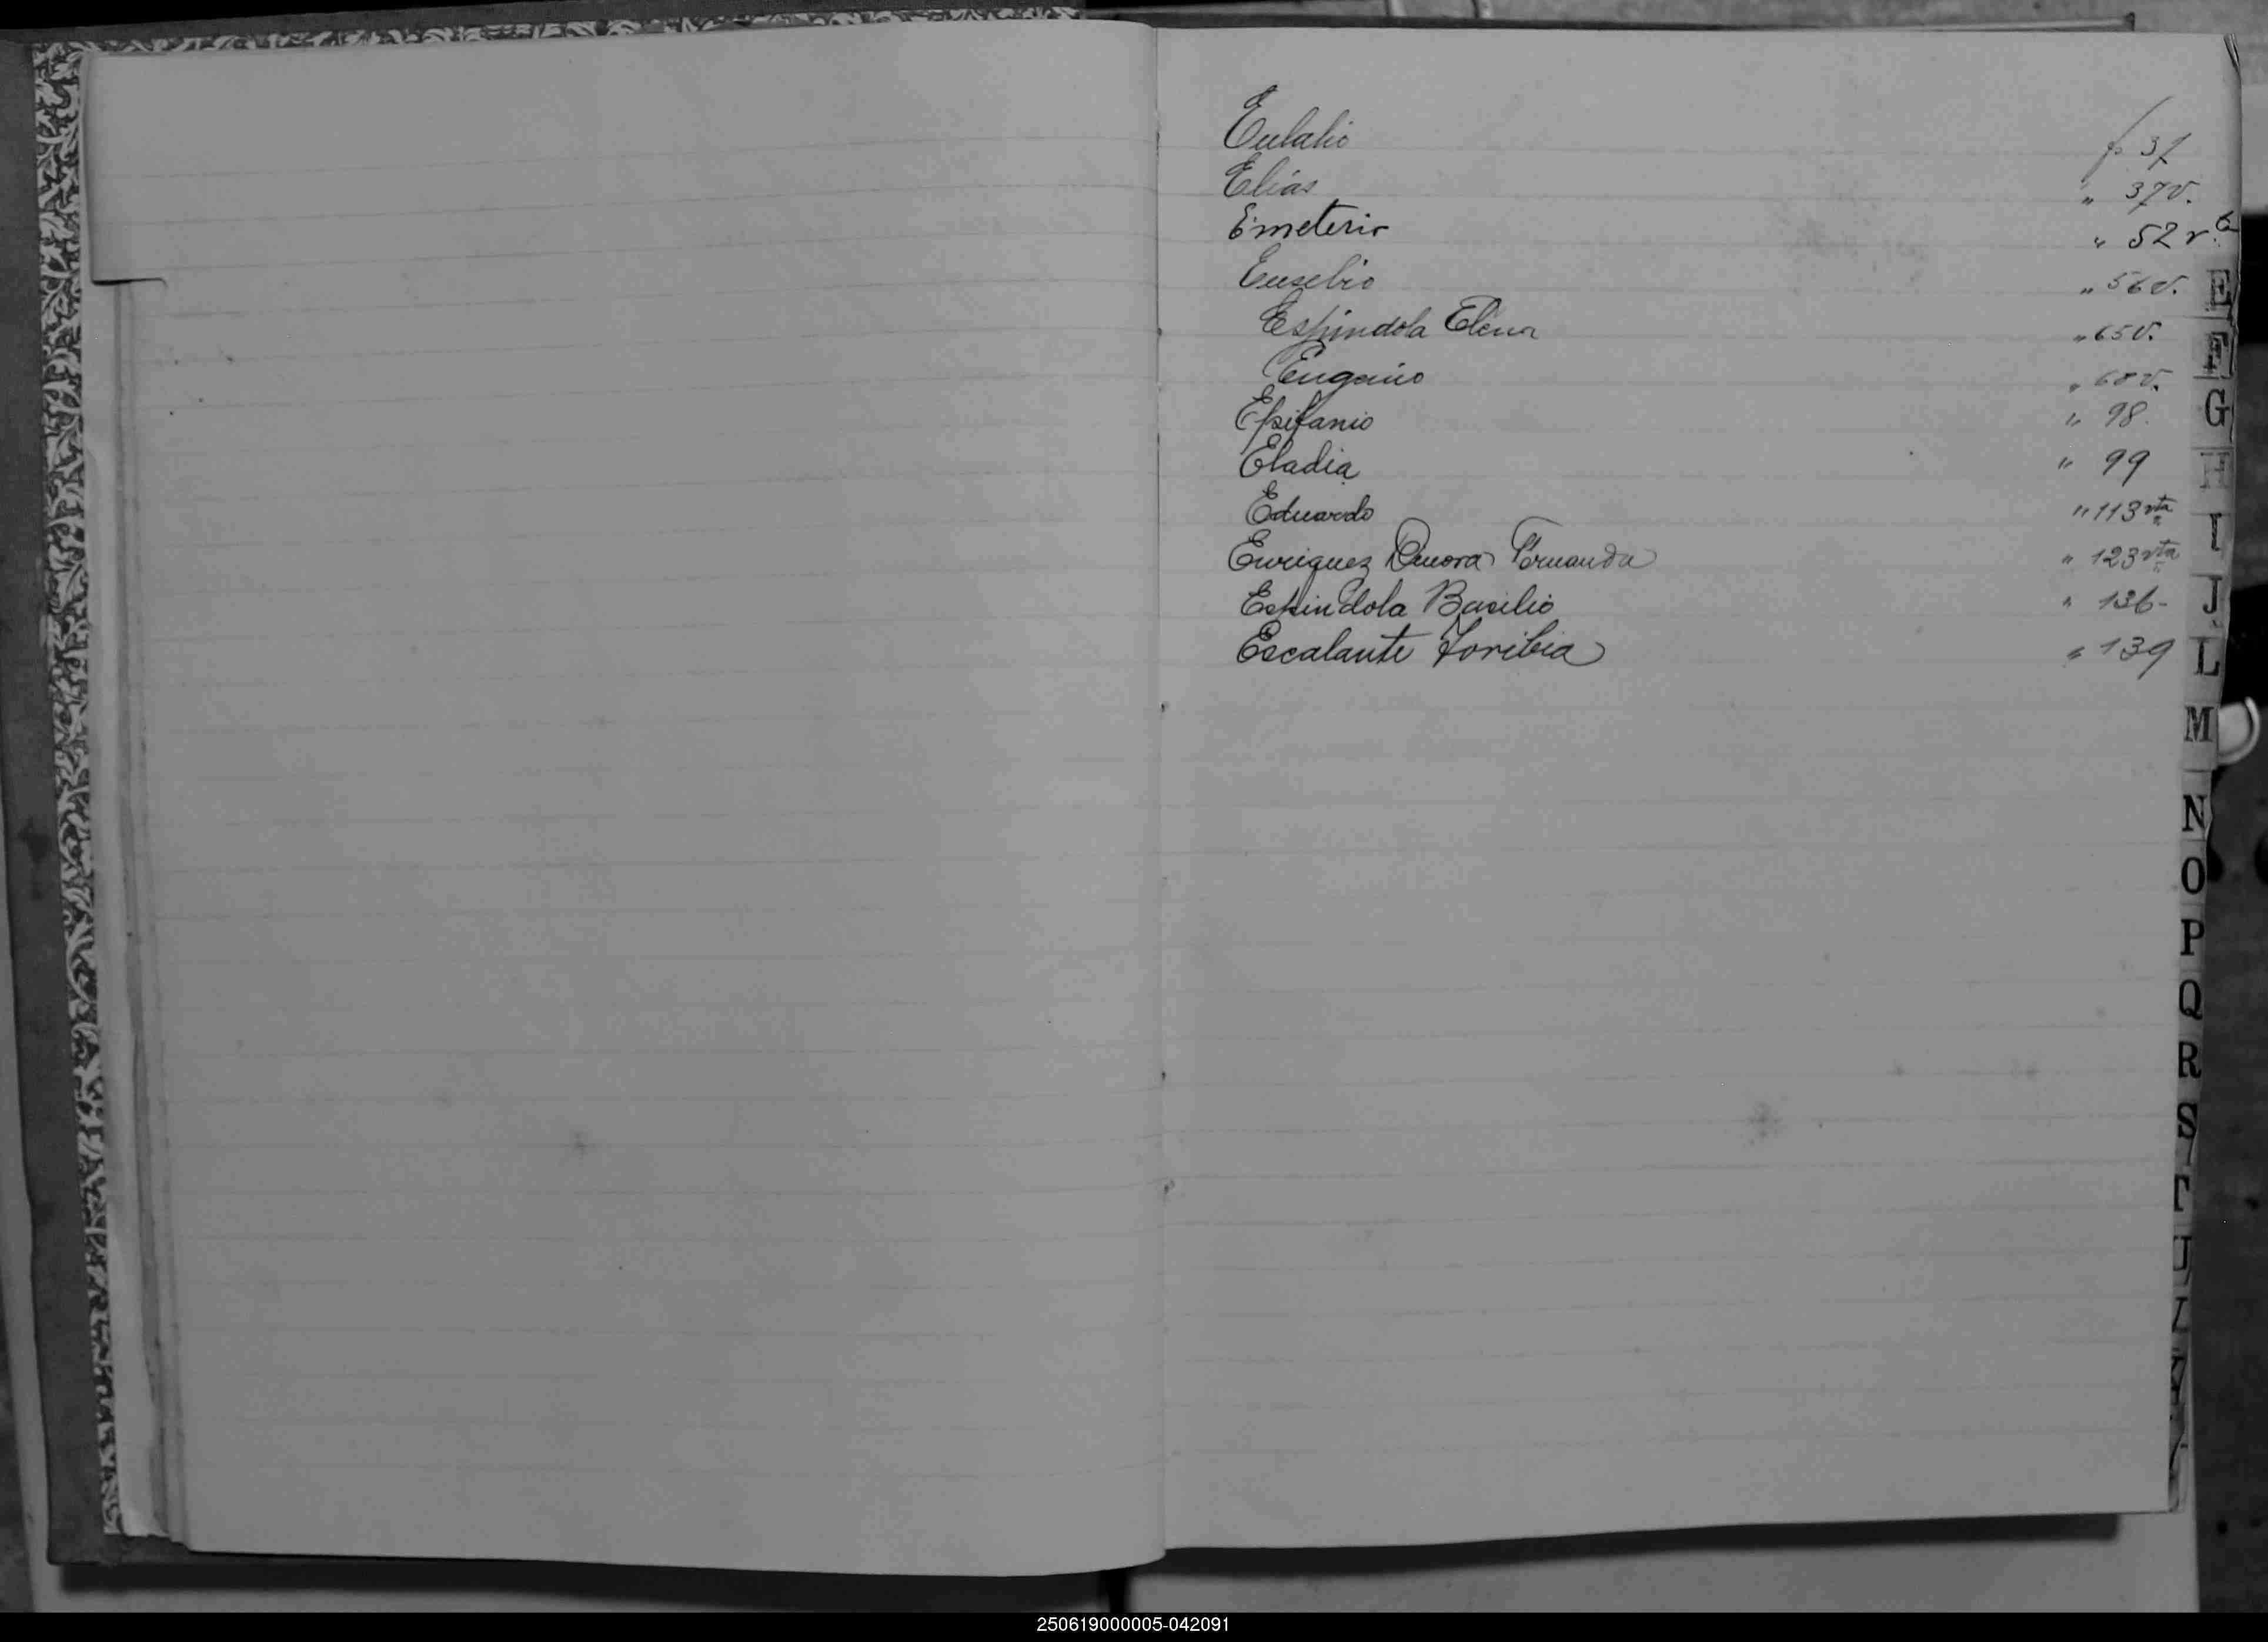 Eulalio f. 37
Elías " 37v.
Emeterio " 52 v.a
Eusebio " 56v.
Espindola Elena " 65v.
Eugenio " 68v.
Epifanio " 98.
Eladia " 99
Eduardo " 113 vta
Enriquez Fernanda " 123 vta
Espindola Basilio " 136-
Escalante Toribia " 139
E
F
G
H
I
J
L
M
N
O
P
Q
R
S
T
U
250619000005-042091